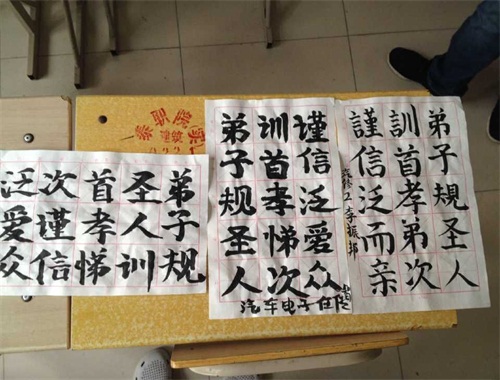 弟子規圣人
訓首孝弟次
謹信泛而亲
修工李振邦
弟子规圣人
训首孝悌次
谨信泛爱众
汽车电子
弟子规
圣人训
首孝悌
次谨信
泛爱众